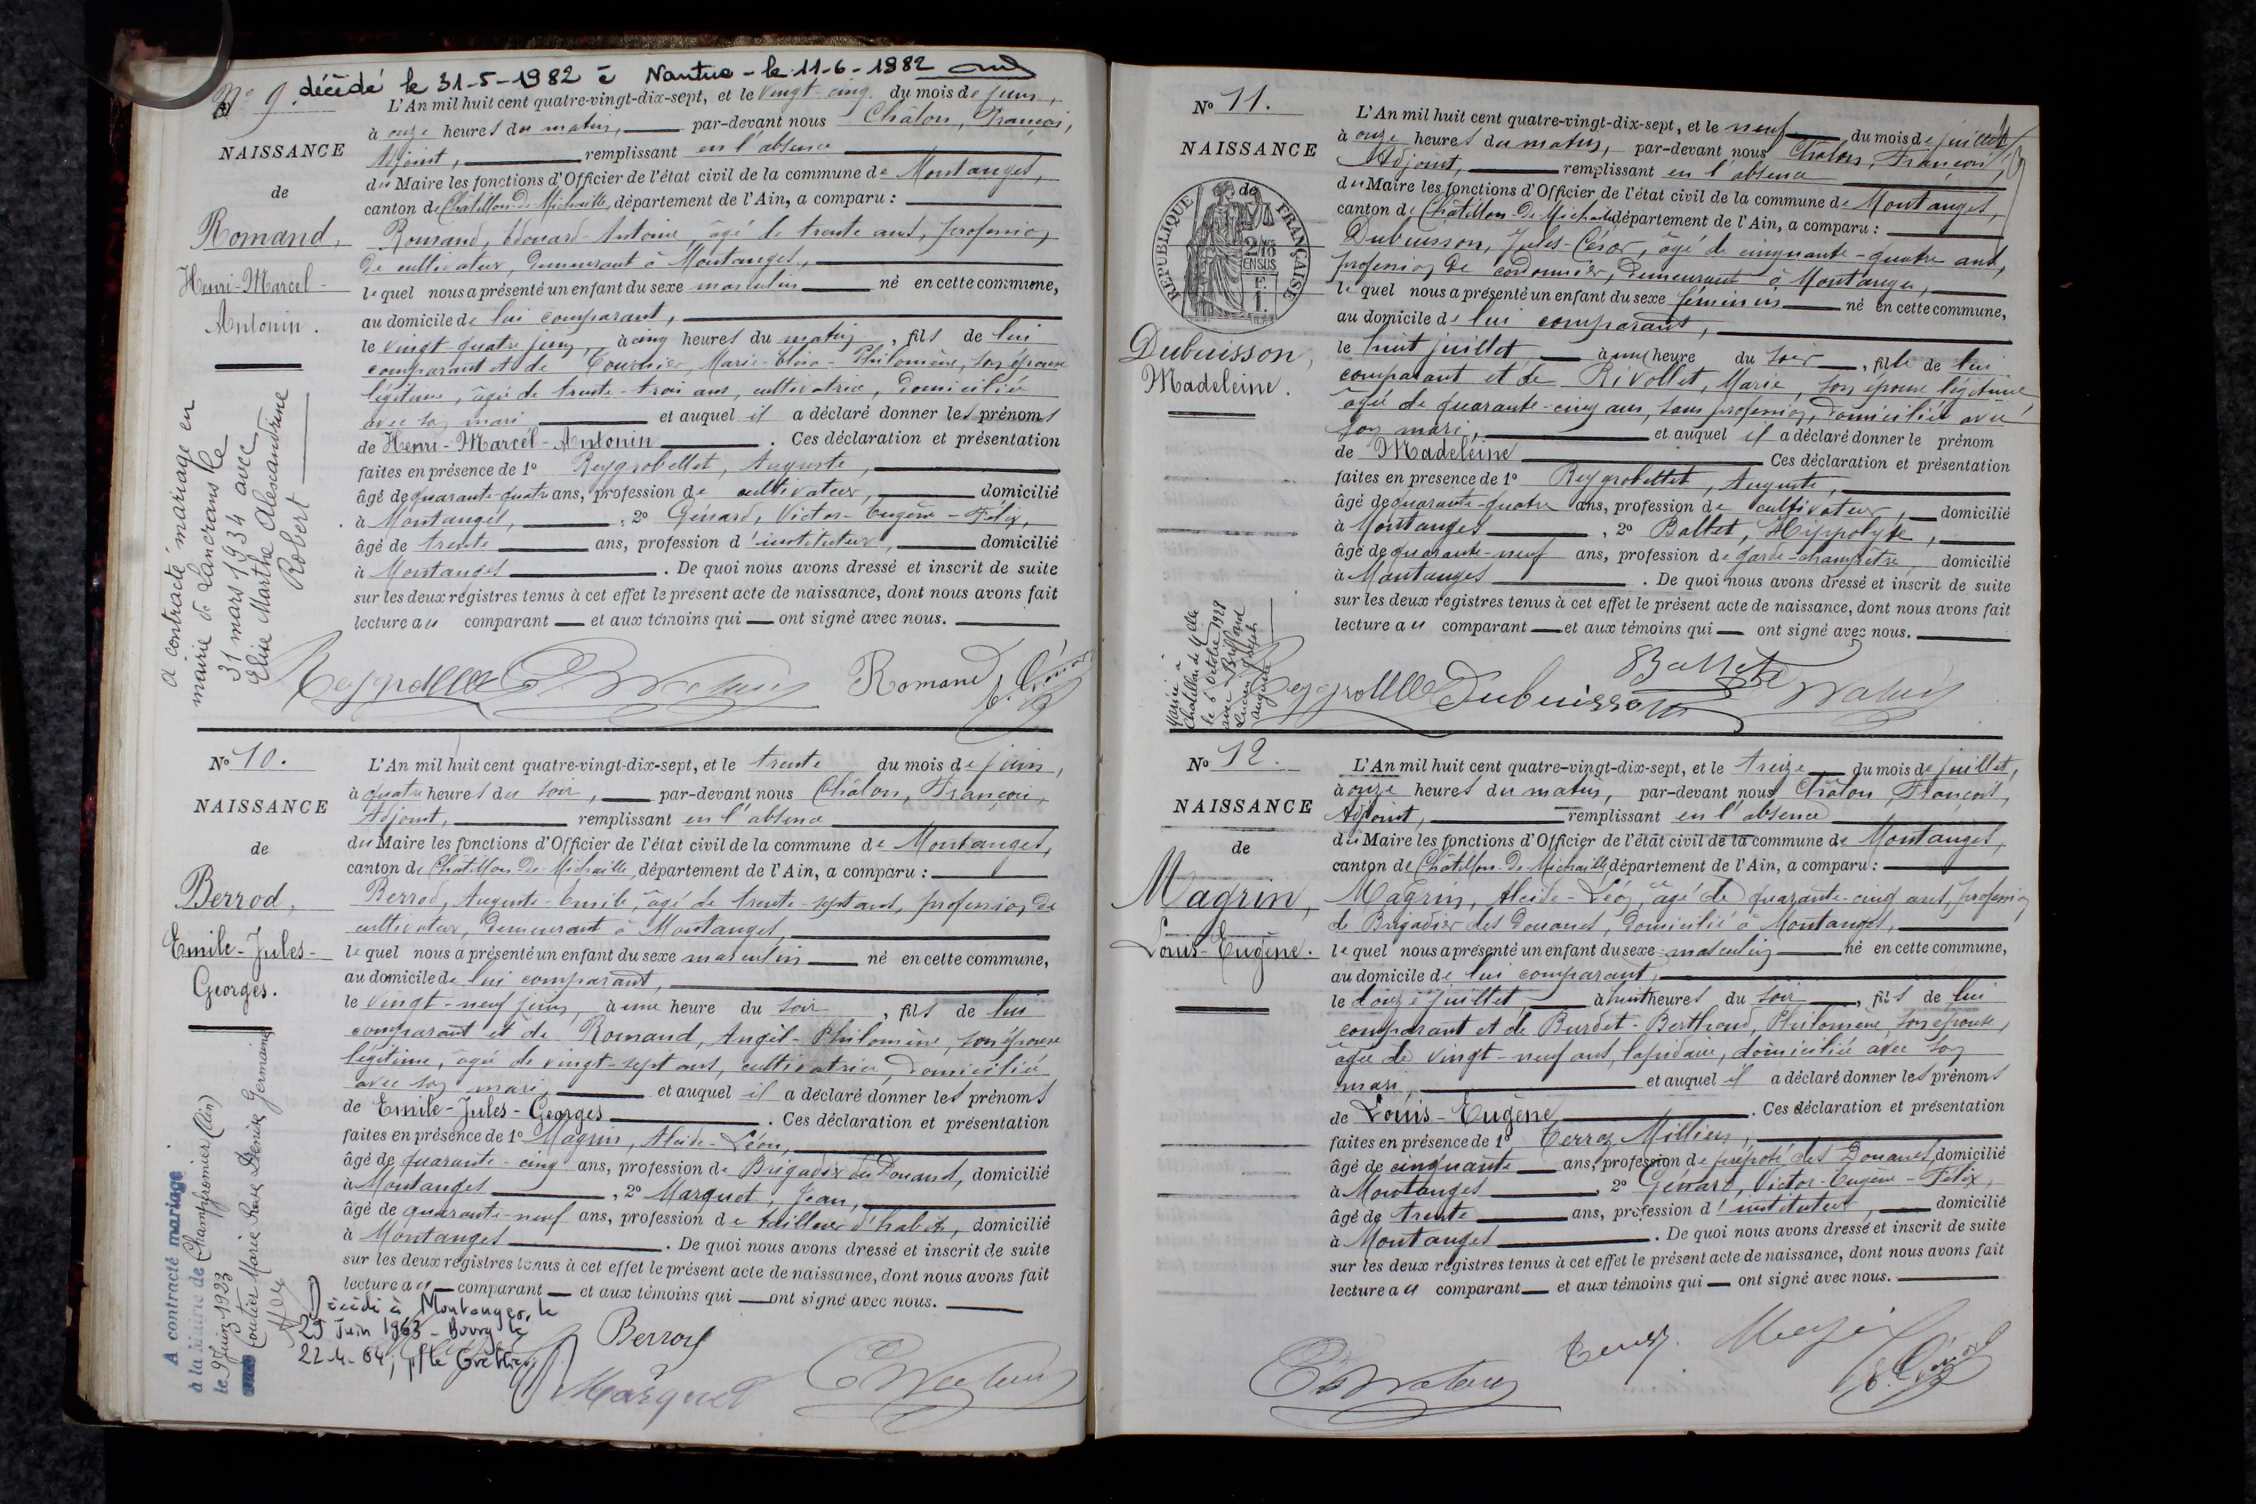 décédé le 31-5-1982 à Nantua - le 11-6-1982
Nº 9.
NAISSANCE
de
Romand,
Henri-Marcel-
Antonin.
L'An mil huit cent quatre-vingt-dix-sept, et le vingt-cinq du mois de juin,
à onze heures du matin, par-devant nous Châlon, François,
Adjoint, remplissant en l'absence
du Maire les fonctions d'Officier de l'état civil de la commune de Montanges,
canton de Châtillon-de-Michaille, département de l'Ain, a comparu :
Romand, Edouard-Antoine âgé de trente ans, profession
de cultivateur, demeurant à Montanges,
lequel nous a présenté un enfant du sexe masculin né en cette commune,
au domicile de lui comparant,
le vingt-quatre juin, à cinq heures du matin, fils de lui
comparant et de Tournier, Marie- -Philomène, son épouse
légitime, âgée de trente-trois ans, cultivatrice, domiciliée
avec son mari et auquel il a déclaré donner les prénoms
de Henri-Marcel-Antonin. Ces déclaration et présentation
faites en présence de 1º Reygrobellet, Auguste,
âgé de quarante-quatre ans, profession de cultivateur, domicilié
à Montanges, 2º Génard, Victor-Eugène-Félix,
âgé de trente ans, profession d'instituteur, domicilié
à Montanges. De quoi nous avons dressé et inscrit de suite
sur les deux registres tenus à cet effet le présent acte de naissance, dont nous avons fait
lecture au comparant et aux témoins qui ont signé avec nous.
a contracté mariage en
mairie de Lancrans le
31 mars 1934 avec
Elise Marthe Alexandrine
Robert
Romand
Nº 10.
NAISSANCE
de
Berrod,
Emile-Jules-
Georges.
L'An mil huit cent quatre-vingt-dix-sept, et le trente du mois de juin,
à quatre heures du soir, par-devant nous Châlon, François,
Adjoint, remplissant en l'absence
du Maire les fonctions d'Officier de l'état civil de la commune de Montanges,
canton de Châtillon-de-Michaille, département de l'Ain, a comparu :
Berrod, Auguste-Emile, âgé de trente-sept ans, profession de
cultivateur, demeurant à Montanges,
lequel nous a présenté un enfant du sexe masculin né en cette commune,
au domicile de lui comparant,
le vingt-neuf juin, à une heure du soir, fils de lui
comparant et de Romand, Angèl-Philomène, son épouse
légitime, âgée de vingt-sept ans, cultivatrice, domiciliée
avec son mari, et auquel il a déclaré donner les prénoms
de Emile-Jules-Georges. Ces déclaration et présentation
faites en présence de 1º Magnin, Alcide-Léon,
âgé de quarante-cinq ans, profession de Brigadier des Douanes, domicilié
à Montanges, 2º Marquet, Jean,
âgé de quarante-neuf ans, profession de tailleur d'habits, domicilié
à Montanges. De quoi nous avons dressé et inscrit de suite
sur les deux registres tenus à cet effet le présent acte de naissance, dont nous avons fait
lecture au comparant et aux témoins qui ont signé avec nous.
A contracté mariage
à la Mairie de Champfromier (Ain)
le 9 Juin 1923
avec Coutier Marie Rose Denise Germaine
Décédé à Montanges, le
25 Juin 1963 - Bourg le
22-4-64, p/le Greffier
Berrod
Marquet
Nº 11.
NAISSANCE
de
RÉPUBLIQUE FRANÇAISE
2/10 EN SUS
Dubuisson,
Madeleine.
L'An mil huit cent quatre-vingt-dix-sept, et le neuf du mois de juillet
à onze heures du matin, par-devant nous Châlon, François,
Adjoint, remplissant en l'absence
du Maire les fonctions d'Officier de l'état civil de la commune de Montanges,
canton de Châtillon-de-Michaille département de l'Ain, a comparu :
Dubuisson, Jules-César, âgé de cinquante-quatre ans,
profession de cordonnier, demeurant à Montanges,
lequel nous a présenté un enfant du sexe féminin né en cette commune,
au domicile de lui comparant,
le huit juillet, à une heure du soir, fille de lui
comparant et de Rivollet, Marie, son épouse légitime
âgée de quarante-cinq ans, sans profession, domiciliée avec
son mari, et auquel il a déclaré donner le prénom
de Madeleine Ces déclaration et présentation
faites en présence de 1º Reygrobellet, Auguste,
âgé de quarante-quatre ans, profession de cultivateur, domicilié
à Montanges, 2º Ballet, Hippolyte,
âgé de quarante-neuf ans, profession de garde-champêtre, domicilié
à Montanges. De quoi nous avons dressé et inscrit de suite
sur les deux registres tenus à cet effet le présent acte de naissance, dont nous avons fait
lecture au comparant et aux témoins qui ont signé avec nous.
Marié à
Châtillon de
le 6 octobre 1928
avec
Lucien Joseph
Auguste
Dubuisson
Ballet
Nº 12.
NAISSANCE
de
Magnin,
Louis-Eugène.
L'An mil huit cent quatre-vingt-dix-sept, et le treize du mois de juillet,
à onze heures du matin, par-devant nous Châlon, François,
Adjoint, remplissant en l'absence
du Maire les fonctions d'Officier de l'état civil de la commune de Montanges,
canton de Châtillon-de-Michaille département de l'Ain, a comparu :
Magnin, Alcide-Léon, âgé de quarante-cinq ans, profession
de Brigadier des Douanes, domicilié à Montanges,
lequel nous a présenté un enfant du sexe masculin né en cette commune,
au domicile de lui comparant,
le douze juillet, à huit heures du soir, fils de lui
comparant et de Burdet-Berthoud, Philomène, son épouse,
âgée de vingt-neuf ans, lapidaire, domiciliée avec son
mari, et auquel il a déclaré donner les prénoms
de Louis-Eugène. Ces déclaration et présentation
faites en présence de 1º Terroz, Millien,
âgé de cinquante ans, profession de préposé des Douanes, domicilié
à Montanges, 2º Génard, Victor-Eugène-Félix,
âgé de trente ans, profession d'instituteur, domicilié
à Montanges. De quoi nous avons dressé et inscrit de suite
sur les deux registres tenus à cet effet le présent acte de naissance, dont nous avons fait
lecture au comparant et aux témoins qui ont signé avec nous.